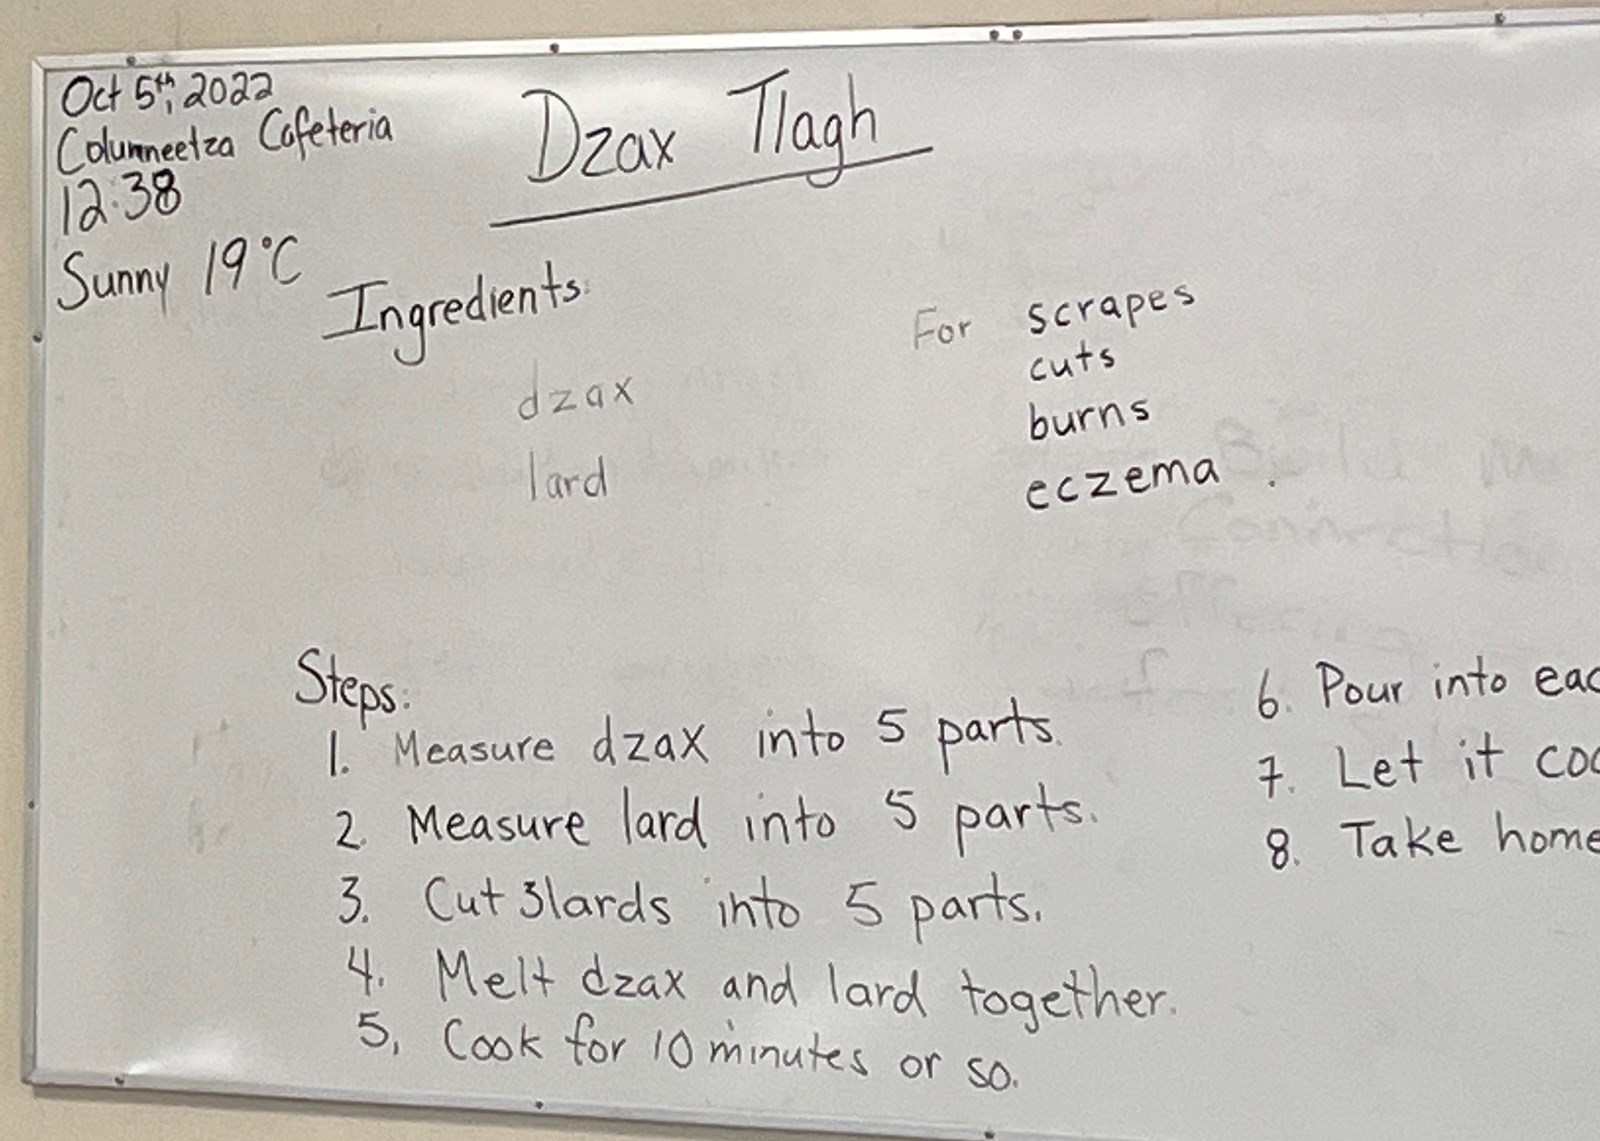 Oct 5th, 2022
Columneetza Cafeteria
12:38
Sunny 19°C
Dzax Tlagh
Ingredients:
dzax
lard
For scrapes
cuts
burns
eczema.
Steps:
1. Measure dzax into 5 parts.
2. Measure lard into 5 parts.
3. Cut 3 lards into 5 parts.
4. Melt dzax and lard together.
5. Cook for 10 minutes or so.
6. Pour into
7. Let it
8. Take home